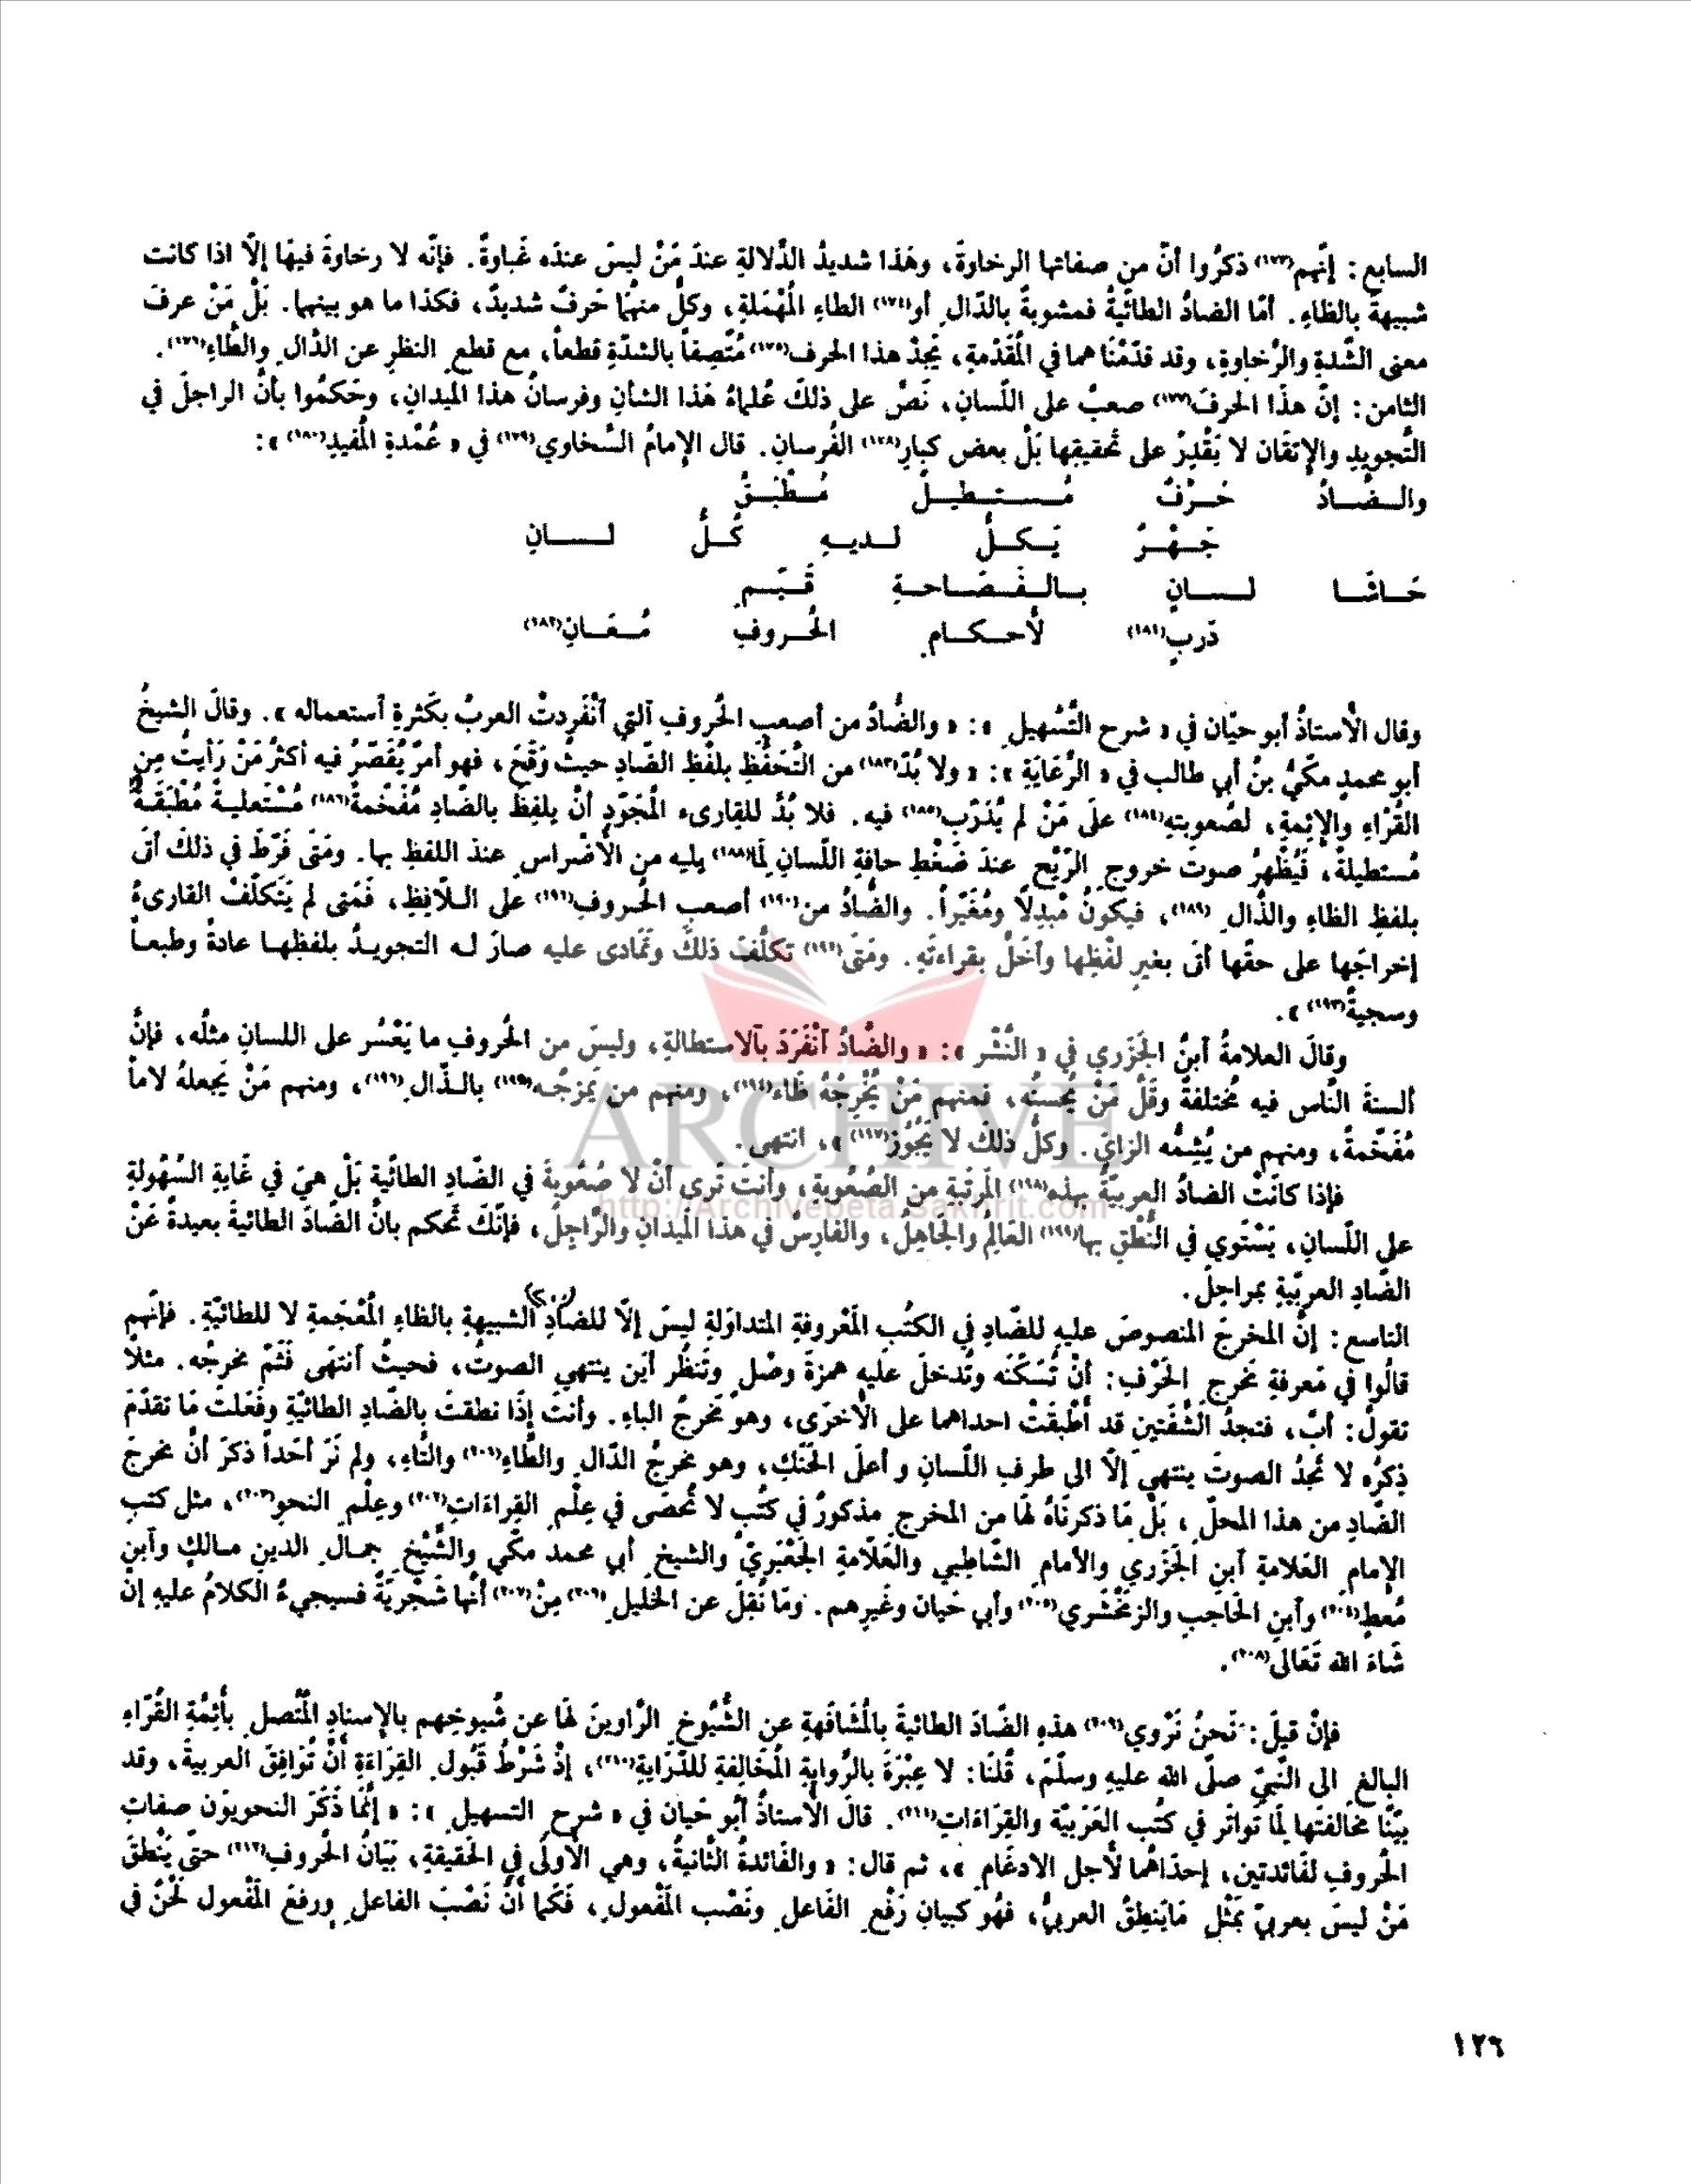 السابع: إنّهم(١٧٣) ذكرُوا أنّ من صفاتها الرخاوةَ، وهَذا شديدُ الدَّلالةِ عندَ مَنْ ليسَ عندَه غَباوةٌ. فإنّه لا رخاوةَ فيهَا إلّا اذا كانت
شبيهةً بالظاءِ. أمّا الضادُ الطائيّةُ فمشوبةٌ بالدّالِ أو(١٧٤) الطاءِ المُهْمَلةِ، وكلٌّ منهُمَا حَرفٌ شديدٌ، فكذا ما هو بينهما. بَلْ مَنْ عرفَ
معنى الشّدةِ والرَّخاوةِ، وقد قدّمْنَا هما في المُقَدّمةِ، يَجِدْ هذا الحرف(١٧٥) مُتّصِفاً بالشدّةِ قطعاً، مع قطعِ النظرِ عن الدَّالِ والطَّاءِ(١٧٦).
الثامن: إنّ هذَا الحرفَ(١٧٧) صعبٌ على اللّسانِ، نَصَّ على ذلكَ عُلماءُ هَذا الشأنِ وفرسانُ هذا الميدانِ، وحَكمُوا بأنَّ الراجلَ في
التَّجويدِ والإتقَان لا يَقْدِرُ على تَحقيقِها بَلْ بعض كبارِ(١٧٨) الفُرسانِ. قال الإمامُ السَّخاوي(١٧٩) في « عُمْدةِ المُفيدِ(١٨٠) »:
والـضَّـادُ حَـرْفٌ مُـسـتـطـيلٌ مُـطْبَـقٌ
جَـهْـرٌ يَـكـلُّ لـديـهِ كُـلُّ لـسـانِ
حَـاشَـا لـسـانٍ بـالـفَـصَـاحـةِ قَـيّـمٍ
دَرِبٍ(١٨١) لأحـكـامِ الحُـروفِ مُـعَـانِ(١٨٢)
وقال الأستاذُ أبو حيّان في « شرحِ التَّسْهيلِ »: « والضَّادُ من أصعبِ الحُروفِ آلتي أنْفَردتْ العربُ بكَثرةِ أستعماله ». وقالَ الشيخُ
أبو محمدٍ مكّيُّ بنُ أبي طالب في « الرِّعَايَةِ »: « ولا بُدَّ(١٨٣) من التَّحَفُّظِ بلفْظِ الضَّادِ حيثُ وَقَعَ، فهو أمرٌ يُقَصّرُ فيه أكثرُ مَنْ رَأيتُ مِن
القُرّاءِ والإئمةِ، لصُعوبتِهِ(١٨٤) علَى مَنْ لم يُدَرّب(١٨٥) فيه. فلا بُدَّ للقارىء المُجَوّدِ أنْ يلفِظَ بالضَّادِ مُفَخّمةً(١٨٦) مُسْتعليةً مُطْبَقَةً
مُستطيلةً، فَيُظْهِرُ صوتَ خروجِ الرّيْحِ عندَ ضَغْطِ حافةِ اللّسانِ لِمَا(١٨٨) يليه من الأضْراسِ عندَ اللفظِ بها. ومَتَى فَرّطَ في ذلكَ أتَى
بلفظِ الظاءِ والذَّالِ (١٨٩)، فيكونُ مُبْدِلاً ومُغَيّراً. والضَّادُ من(١٩٠) أصعبِ الحُروفِ(١٩١) على الـلافِظِ، فَمتى لم يَتَكلّفْ القارىءُ
إخراجَها على حقّها أتَى بغيرِ لفْظِها وأخَلَّ بقراءتِهِ. ومَتَى(١٩٢) تكلَّفَ ذلكَ وتَمَادى عليه صارَ لـه التجويدُ بلفظِها عادةً وطبعاً
وسجيةً(١٩٣) ».
وقالَ العلامةُ أبنُ الجَزَري في « النَّشْر »: « والضَّادُ أنْفَرَدَ بآلاستطالةِ، وليسَ من الحُروفِ ما يَعْسُر على اللسانِ مثلُه، فإنَّ
ألسنةَ النَّاس فيه مُختلفةٌ وقَلَّ مَنْ يُحسنُه، فمنهم مَنْ يُخْرِجُهُ ظَاء(١٩٤)، ومنهم من يَمزجُـه(١٩٥) بالـذّالِ(١٩٦)، ومنهم مَنْ يَجعلهُ لاماً
مُفَخّمةً، ومنهم من يُشِمُّه الزايَ. وكلُّ ذلكَ لا يَجُوُز(١٩٧) »، انتهى.
فإذا كانَتْ الضادُ العربيّةُ بهذه(١٩٨) المَرتبةِ من الصُّعوبةِ، وأنتَ تُرى أنْ لا صُعُوبةَ في الضّادِ الطائيّةِ بَلْ هيَ في غَايةِ السُّهُولةِ
على اللّسانِ، يَسْتَوي في النُّطْقِ بها(١٩٩) العَالِمُ والجَاهِلُ، والفارِسُ في هذا المَيدانِ والرَّاجِلُ، فإنّكَ تَحكم بانَّ الضَّادَ الطائيةَ بعيدةٌ عَنْ
الضَّادِ العربيّةِ بمراحِلَ.
التاسع: إنَّ المخرجَ المنصوصَ عليهِ للضَّادِ في الكتُبِ المَعْروفةِ المتداوَلةِ ليسَ إلّا للضادِ(٢٠٠) الشبيهةِ بالظاءِ المُعْجَمةِ لا للطائيّةِ. فإنّهم
قالُوا في مَعرفةِ مَخرجِ الحَرْفِ: أنْ تُسَكّنَه وتُدخلَ عليهِ همزةَ وصْلٍ وتَنظُر أيَن ينتهي الصوتُ، فحيثُ أنتهَى فَثَمَّ مخرجُه. مثلاً
تقولُ: أبَّ، فتجدُ الشَّفَتينِ قد أُطْبقَتْ احداهما على الأخرَى، وهوَ مَخرجُ الباءِ. وأنتَ إذَا نطقتَ بالضَّادِ الطائيّةِ وفَعلتَ مَا تقدّمَ
ذِكرُه لا تَجدُ الصوتَ ينتهي إلّا الى طرفِ اللّسانِ و أعلَى الحَنَكِ، وهو مَخرجُ الدّالِ والطَّاءِ(٢٠١) والتَّاءِ، ولم نَرَ أحَداً ذكرَ أنَّ مخرجَ
الضَّادِ من هذا المحلِّ، بَلْ مَا ذكرنَاهُ لهَا من المخرجِ مذكورٌ في كتُب لا تُحصَى في عِلْمِ القِراءَاتِ(٢٠٢) وعِلْمِ النحوِ(٢٠٣)، مثل كتبِ
الإمامِ العَلامةِ أبنِ الجَزَري والأمامِ الشَّاطبي والعَلّامةِ الجَعْبَريّ والشيخِ أبي محمد مكّي والشَّيْخِ جمـالِ الدينِ مـالكٍ وأبنِ
مُعطٍ(٢٠٤) وأبنِ الحَاجبِ والزمَخْشَري(٢٠٥) وأبي حَيان وغَيرِهم. ومَا نُقِلَ عن الخَليلِ(٢٠٦) مِنْ(٢٠٧) أنّها شَجْريّةٌ فسيجيءُ الكلامُ عليهِ إنْ
شَاءَ الله تَعَالى(٢٠٨).
فإنْ قيلَ: نَحنُ نَرْوي(٢٠٩) هذهِ الضَّادَ الطائيةَ بالمُشَافَهةِ عنِ الشُّيُوخِ الرّاوينَ لهَا عن شُيوخِهم بالإسنادِ المُتّصلِ بأئِمّةِ القُرّاءِ
البالغِ الى النَّبيّ صلّى الله عليهِ وسلّمَ، قُلنَا: لا عِبْرَةَ بالرَّوايةِ المُخَالِفةِ للدّرَايةِ(٢١٠)، إذْ شَرْطُ قَبُولِ القِرَاءَةِ أنْ تُوَافِقَ العربيةَ، وقد
بيّنَّا مخالفتَها لمَا تَواتَر في كتُب العَرَبيّةِ والقِرَاءَاتِ(٢١١). قالَ الأستاذُ أبُو حَيان في « شرحِ التسهيلِ »: « إنَّمَا ذَكَرَ النحويوّن صفاتِ
الحُروفِ لفَائدتينِ، إحدَاهُما لأجلِ الادغَامِ »، ثم قال: « والفَائدةُ الثَّانيةُ، وهي الأولَى في الحَقيقةِ، بَيَانُ الحُروفِ(٢١٢) حتّى يَنْطِقَ
مَنْ ليسَ بعربيّ بَمثْلِ مَايَنطِقُ العربيُّ، فهُو كبيانِ رَفْعِ الفَاعلِ ونَصْبِ المَفْعولِ، فَكَما أنَّ نَصْبَ الفاعلِ ورفعَ المَفْعول لَحْنٌ في
١٢٦
ARCHIVE
http://Archivebeta.Sakhrit.com